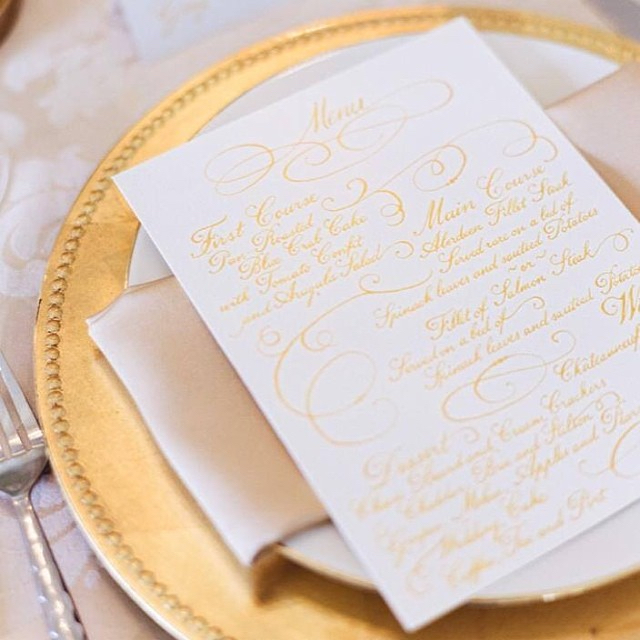 Menu
First Course
Pan Roasted
Blue Crab Cake
with Tomato Confit
and Arugula Salad
Main Course
Aberdeen Fillet Steak
Served rare on a bed of
Spinach leaves and sautéed Potatoes
or
Fillet of Salmon Steak
Served on a bed of
Spinach leaves and sautéed
Dessert
and Cream Crackers
and Stilton
Apples and
Wedding Cake
Coffee Tea and Port